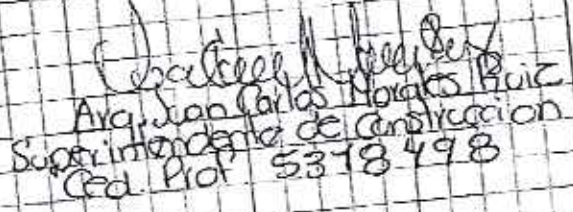 Arq. Juan Carlos Morales Ruiz
Superintendente de Construccion
Ced. Prof 5378498